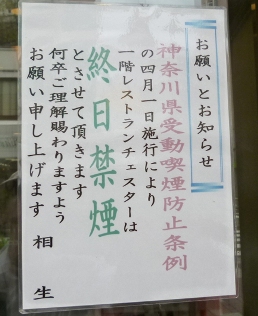 お願いとお知らせ
神奈川県受動喫煙防止条例
の四月一日施行により
一階レストランチェスターは
終日禁煙
とさせて頂きます
何卒ご理解賜わりますよう
お願い申し上げます
相生